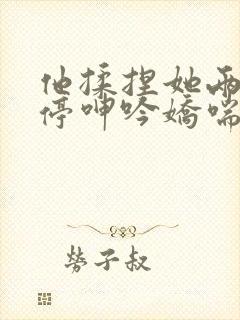 他揉捏她两
停呻吟娇喘
劳子叔